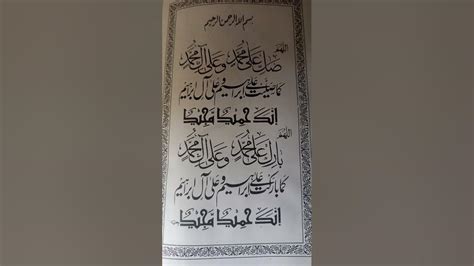 بسم الله الرحمن الرحیم
اللهم
صل علی محمد وعلی آل محمد
کما صلیت علی ابراهیم وعلی آل ابراهیم
انک حمید مجید
اللهم
بارک علی محمد وعلی آل محمد
کما بارکت علی ابراهیم وعلی آل ابراهیم
انک حمید مجید